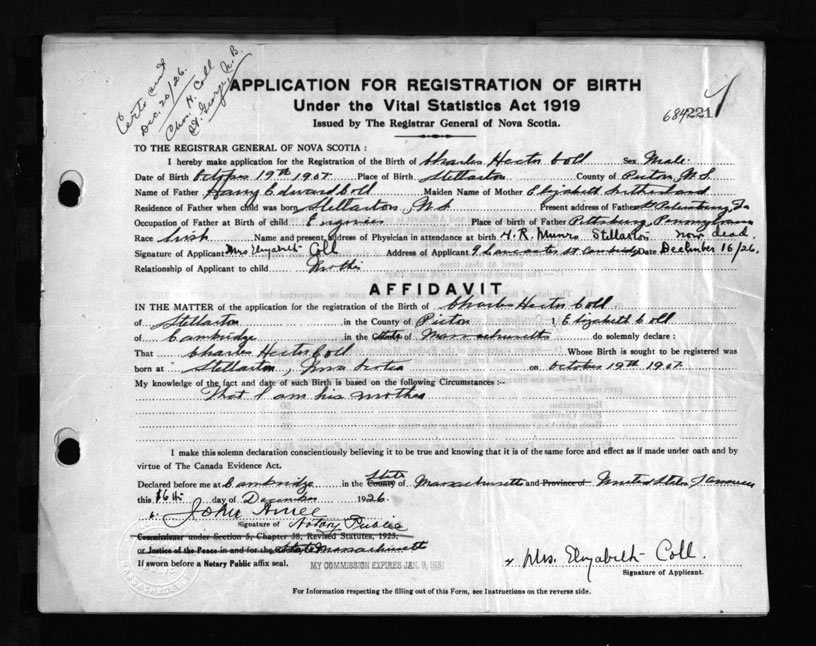 Certs sent
Dec. 20/26.
Chas. H. Coll
St. George, N.B.
APPLICATION FOR REGISTRATION OF BIRTH
Under the Vital Statistics Act 1919
Issued by The Registrar General of Nova Scotia.
684221
TO THE REGISTRAR GENERAL OF NOVA SCOTIA :
I hereby make application for the Registration of the Birth of Charles Hector Coll Sex Male.
Date of Birth October 19th 1907 Place of Birth Stellarton County of Pictou, N.S.
Name of Father Harry Edward Coll Maiden Name of Mother Elizabeth Sutherland
Residence of Father when child was born Stellarton, N.S. Present address of Father St. Petersburg, Fla
Occupation of Father at Birth of child Engineer Place of birth of Father Pittsburg, Pennsylvania
Race Irish Name and present address of Physician in attendance at birth H. R. Munro Stellarton now dead.
Signature of Applicant Mrs Elizabeth Coll Address of Applicant Lancaster St Cambridge Date December 16/26.
Relationship of Applicant to child Mother
AFFIDAVIT
IN THE MATTER of the application for the registration of the Birth of Charles Hector Coll
of Stellarton in the County of Pictou I, Elizabeth Coll
of Cambridge in the State of Massachusetts do solemnly declare :
That Charles Hector Coll Whose Birth is sought to be registered was
born at Stellarton, Nova Scotia on October 19th 1907
My knowledge of the fact and date of such Birth is based on the following Circumstances :-
That I am his mother
I make this solemn declaration conscientiously believing it to be true and knowing that it is of the same force and effect as if made under oath and by
virtue of The Canada Evidence Act.
Declared before me at Cambridge in the County State of Massachusetts and Province of United States of America
this 16th day of December 1926.
John
Signature of Notary Public
Commissioner under Section 5, Chapter 38, Revised Statutes, 1923,
or Justice of the Peace in and for the State Massachusetts
If sworn before a Notary Public affix seal. MY COMMISSION EXPIRES JAN. 9, 1931
x Mrs. Elizabeth Coll.
Signature of Applicant.
For Information respecting the filling out of this Form, see Instructions on the reverse side.